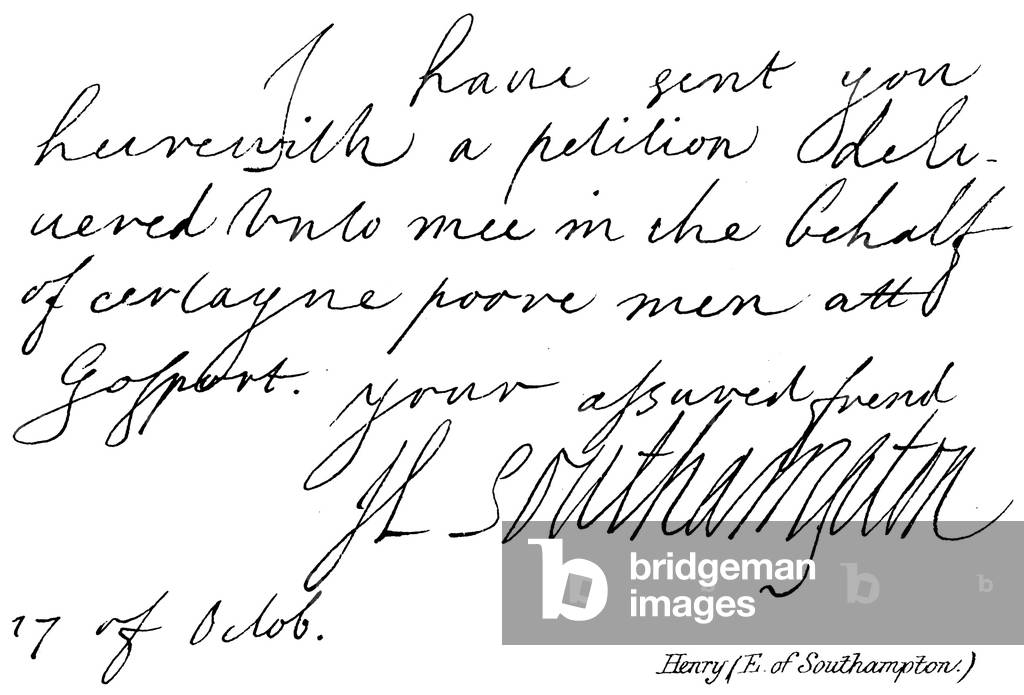 I have sent you
heerewith a petition deli-
uered vnto mee in the behalf
of certayne poore men att
Gosport.
your assured frend
H Southampton
17 of Octob.
Henry (E. of Southampton.)
bridgeman
images